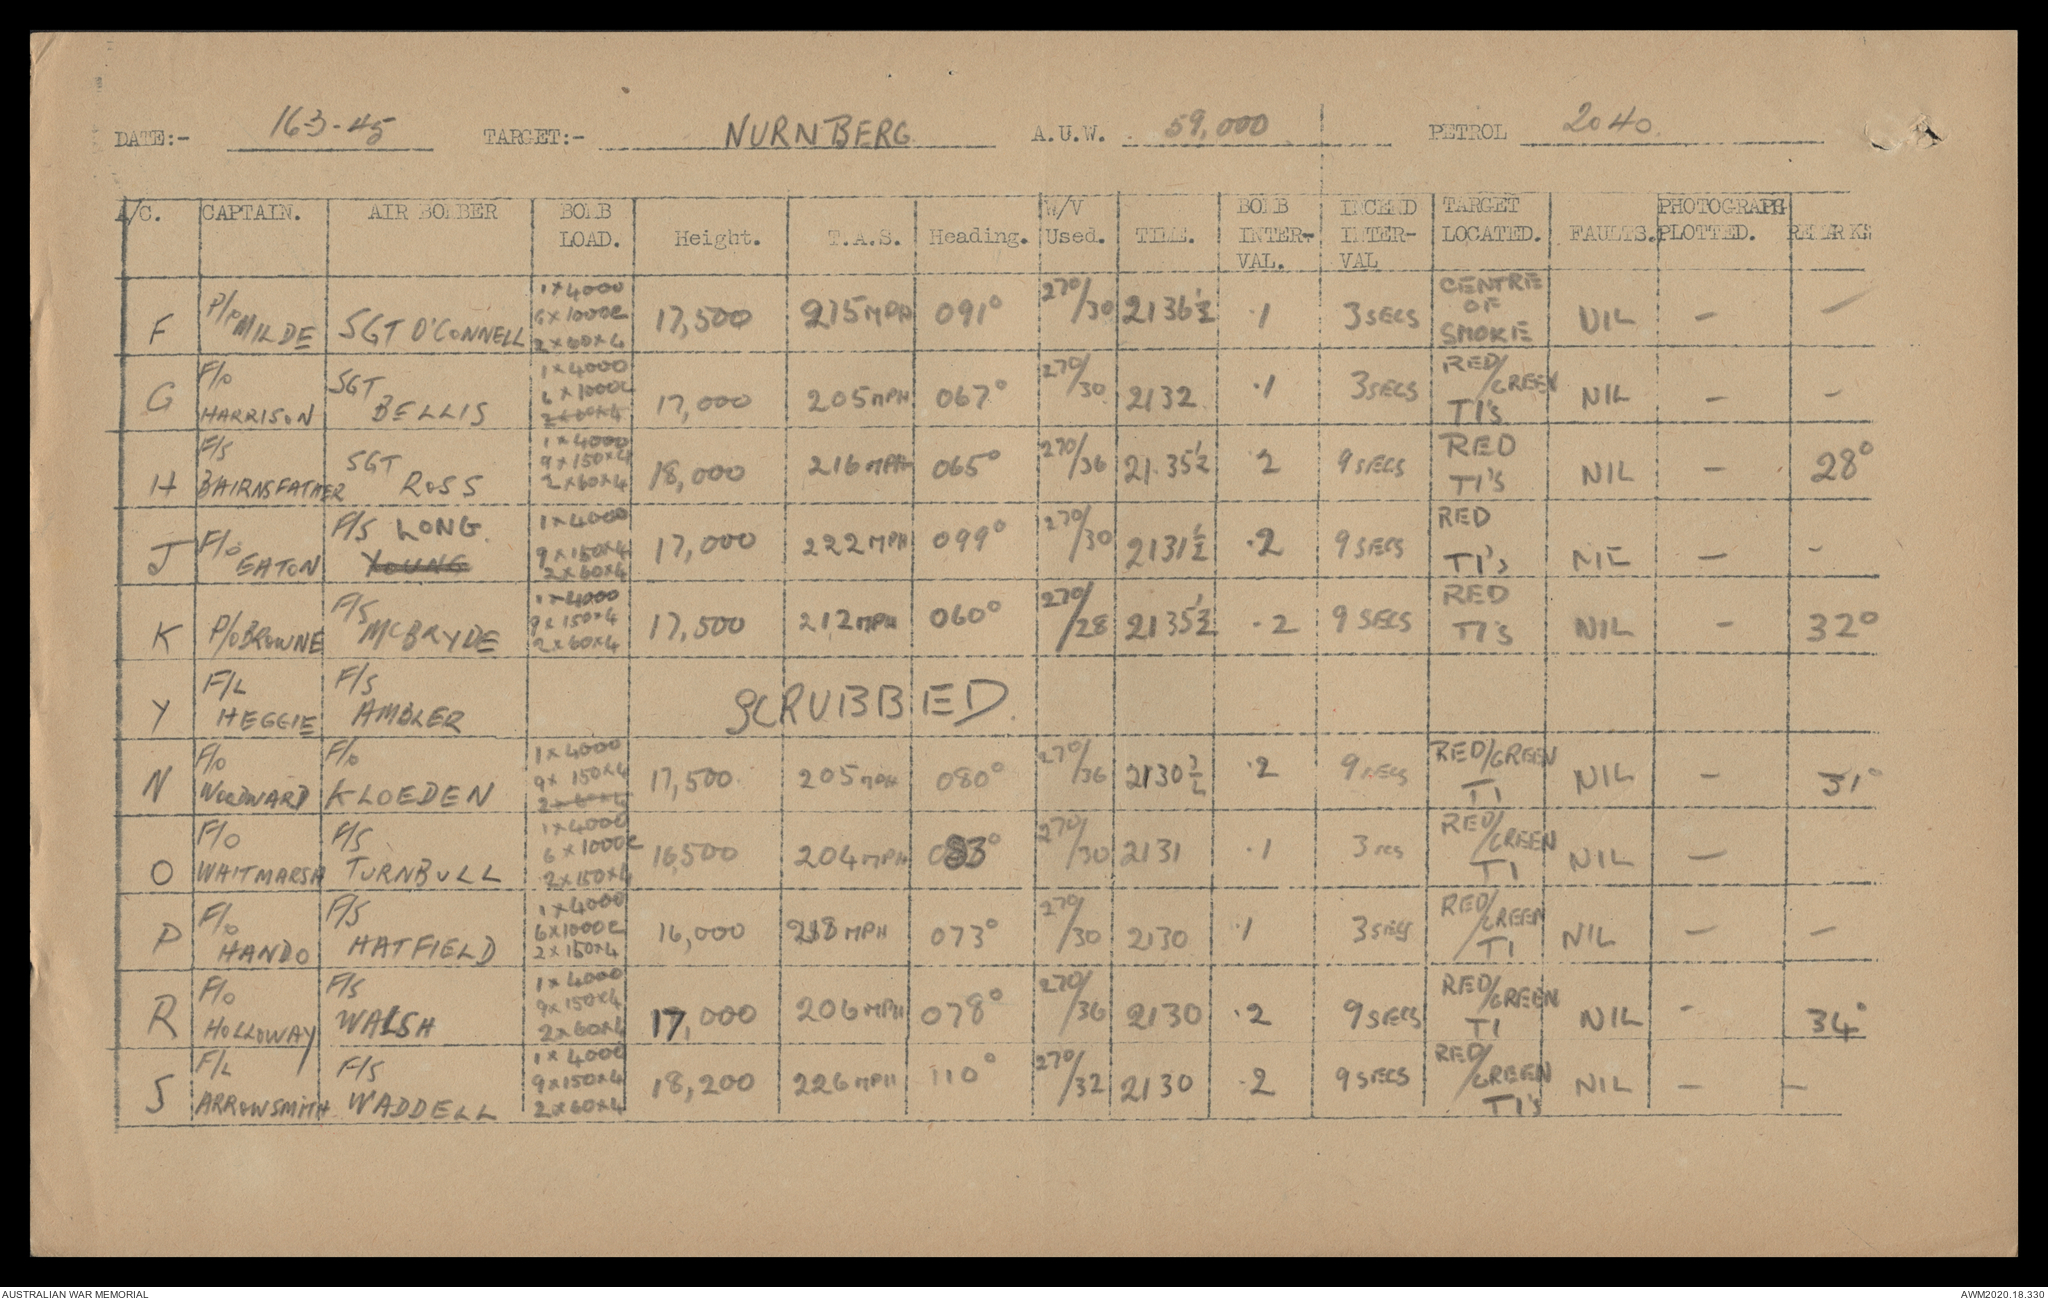 DATE:- 16-3-45 TARGET:- NURNBERG. A.U.W. 59,000 PETROL 2040.
A/C. CAPTAIN. AIR BOMBER BOMB LOAD. Height. T.A.S. Heading. W/V Used. TIME. BOMB INTER- VAL. INCEND INTER- VAL TARGET LOCATED. FAULTS. PHOTOGRAPH PLOTTED. REMARKS
F P/O MILDE SGT O'CONNELL 1x4000 6x1000C 2x60x4 17,500 215MPH 091° 270/30 2136½ .1 3SECS CENTRE OF SMOKE NIL - -
G F/O HARRISON SGT BELLIS 1x4000 6x1000C 2x60x4 17,000 205MPH 067° 270/30 2132 .1 3SECS RED/GREEN TI's NIL - -
H F/S BAIRNSFATHER SGT ROSS 1x4000 9x150x4 2x60x4 18,000 216MPH 065° 270/36 2135½ .2 9SECS RED TI's NIL - 28°
J F/O EATON F/S LONG. YOUNG 1x4000 9x150x4 2x60x4 17,000 222MPH 099° 270/30 2131½ .2 9SECS RED TI's NIL - -
K P/O BROWNE F/S McBRYDE 1x4000 9x150x4 2x60x4 17,500 212MPH 060° 270/28 2135½ .2 9SECS RED TI's NIL - 32°
Y F/L HEGGIE F/S AMBLER SCRUBBED.
N F/O WOODWARD F/O KLOEDEN 1x4000 9x150x4 2x60x4 17,500 205MPH 080° 270/36 2130½ .2 9SECS RED/GREEN TI NIL - 31°
O F/O WHITMARSH F/S TURNBULL 1x4000 6x1000C 2x150x4 16,500 204MPH 083° 270/30 2131 .1 3secs RED/GREEN TI NIL -
P F/O HANDO F/S HATFIELD 1x4000 6x1000C 2x150x4 16,000 218MPH 073° 270/30 2130 .1 3secs RED/GREEN TI NIL - -
R F/O HOLLOWAY F/S WALSH 1x4000 9x150x4 2x60x4 17,000 206MPH 078° 270/36 2130 .2 9SECS RED/GREEN TI NIL - 34°
S F/L ARROWSMITH F/S WADDELL 1x4000 9x150x4 2x60x4 18,200 226MPH 110° 270/32 2130 .2 9SECS RED/GREEN TI's NIL - -
AUSTRALIAN WAR MEMORIAL AWM2020.18.330